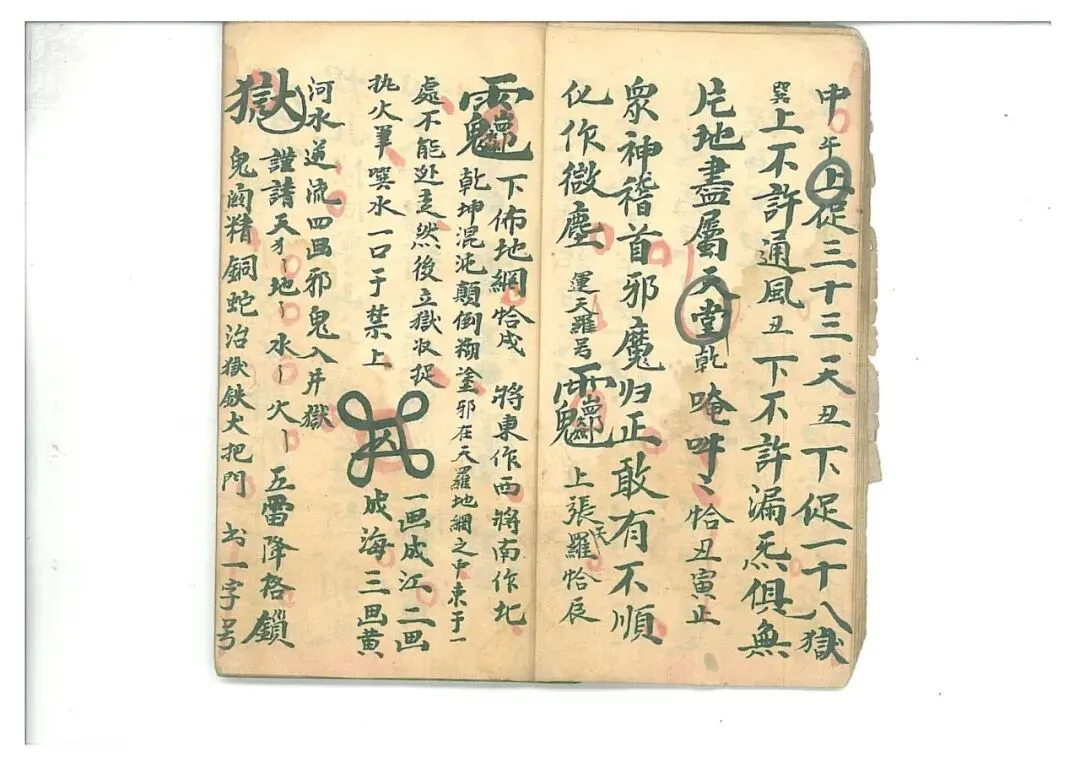 中午上促三十三天丑下促一十八獄
巽上不許通風丑下不許漏炁俱無
片地盡屬天堂乾唵吽〻恰丑寅正
眾神稽首邪魔归正敢有不順
化作微塵 運天羅号 上張天羅恰辰
下佈地網恰戌 將東作西將南作北
乾坤混沌顛倒糊塗邪在天羅地網之中東于一
處不能迯走然後立獄収捉
执火筆噀水一口于禁上
一画成江二画
成海三画黄
河水逆流四画邪鬼入井獄
謹請天 地 水 火 五雷降格鎖
獄 鬼 精銅蛇治獄鉄犬把門 书一字号